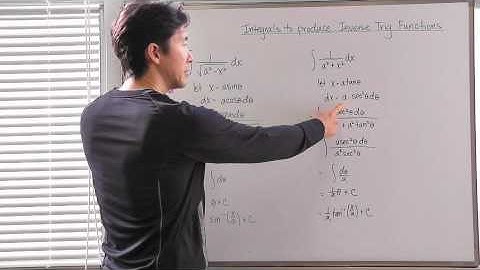 Integrals to produce Inverse Trig Functions
1/√(a²-x²) dx
let x = asinθ
dx = acosθdθ
∫dθ
θ + C
sin⁻¹(x/a) + C
∫ 1/(a²+x²) dx
let x = atanθ
dx = a sec²θdθ
sec²θdθ
+ a²tan²θ
∫ asec²θdθ/(a²sec²θ)
= ∫ dθ/a
= 1/a θ + C
= 1/a tan⁻¹(x/a) + C